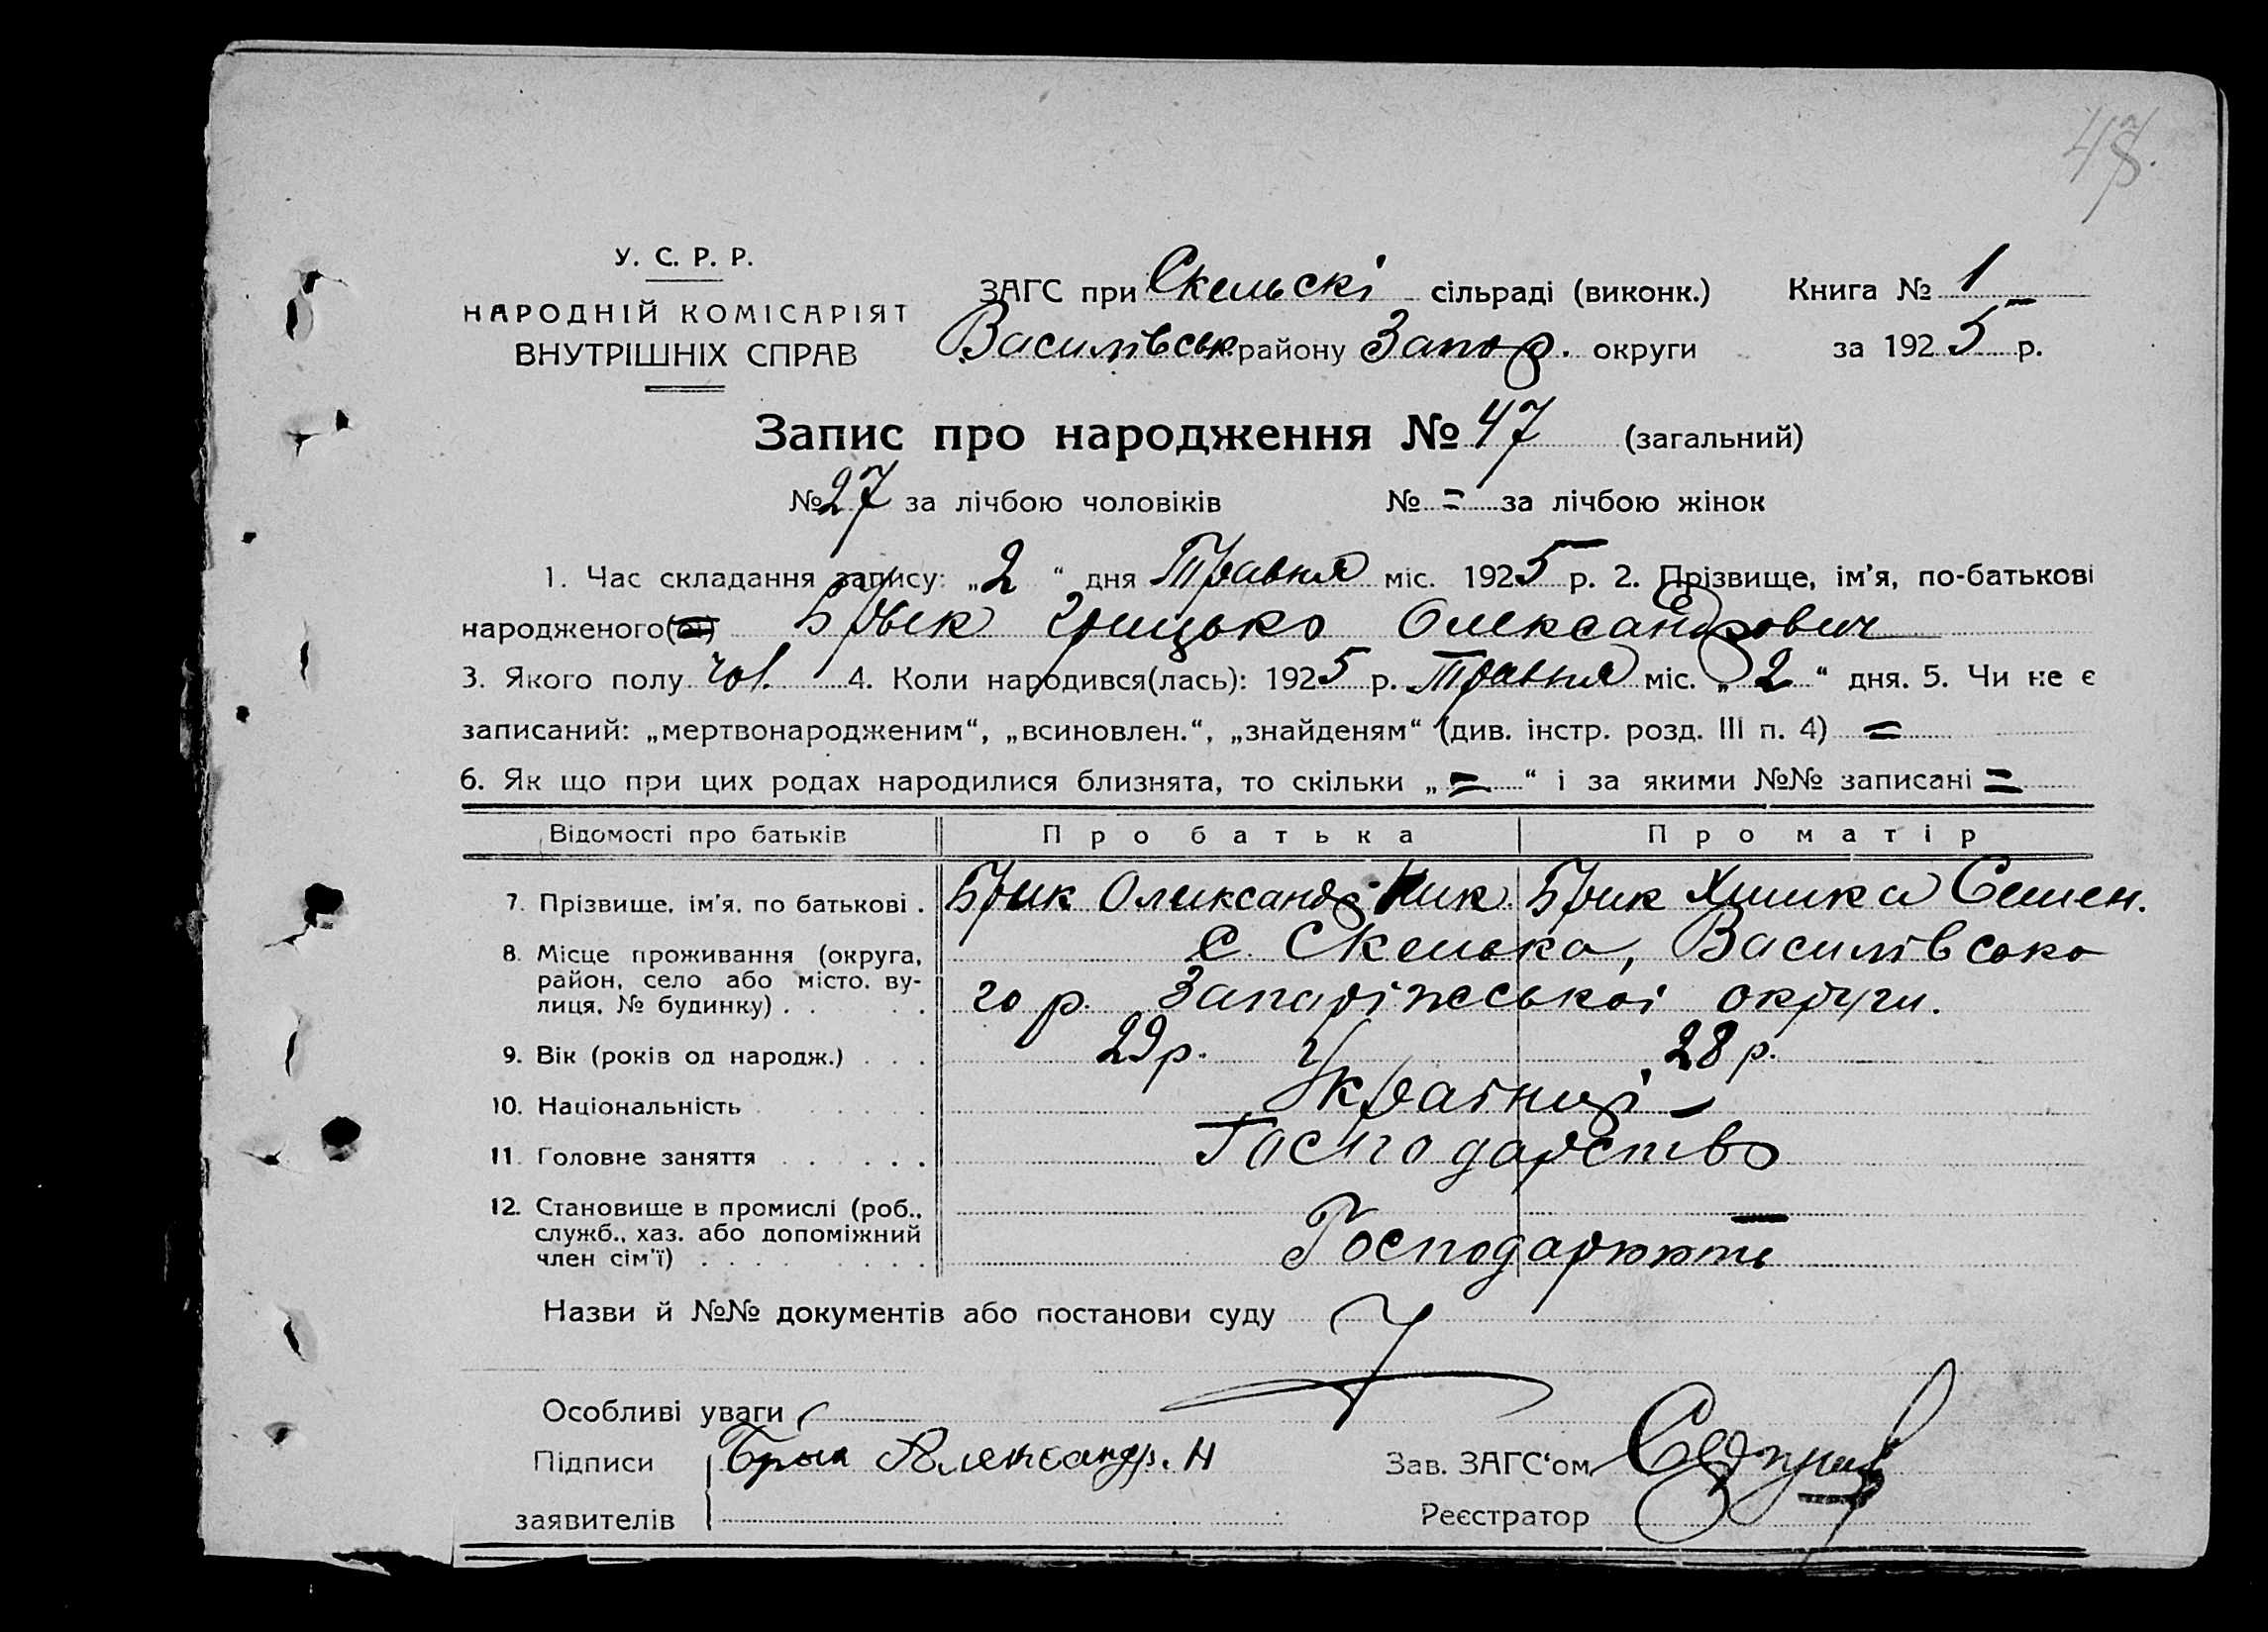 48.
У. С. Р. Р.
НАРОДНІЙ КОМІСАРІЯТ
ВНУТРІШНІХ СПРАВ
ЗАГС при Скельскі сільраді (виконк.) Книга № 1
Василівськ. району Запор. округи за 1925 р.
Запис про народження № 47 (загальний)
№ 27 за лічбою чоловіків № = за лічбою жінок
1. Час складання запису: „2“ дня Травня міс. 1925 р. 2. Прізвище, ім'я, по-батькові
народженого Брык Грицько Олександрович
3. Якого полу чол. 4. Коли народився(лась): 1925 р. Травня міс. „2“ дня. 5. Чи не є
записаний: „мертвонародженим“, „всиновлен.“, „знайденям“ (див. інстр. розд. III п. 4) =
6. Як що при цих родах народилися близнята, то скільки „=“ і за якими №№ записані =
Відомості про батьків Про батька Про матір
7. Прізвище, ім'я, по батькові . Брик Олександр Ник. Брик Химка Семен.
8. Місце проживання (округа, район, село або місто, вулиця, № будинку) . . . с. Скелька, Василівсько
го р. Запоріжської округи.
9. Вік (років од народж.) . . . 29 р. 28 р.
10. Національність . . . . . Українці –
11. Головне заняття . . . . . Господарство
12. Становище в промислі (роб., служб., хаз. або допоміжний член сім'ї) . . . . . . . . Господарюють
Назви й №№ документів або постанови суду
Особливі уваги
Підписи Брык Александр. Н Зав. ЗАГС'ом
заявителів Реєстратор